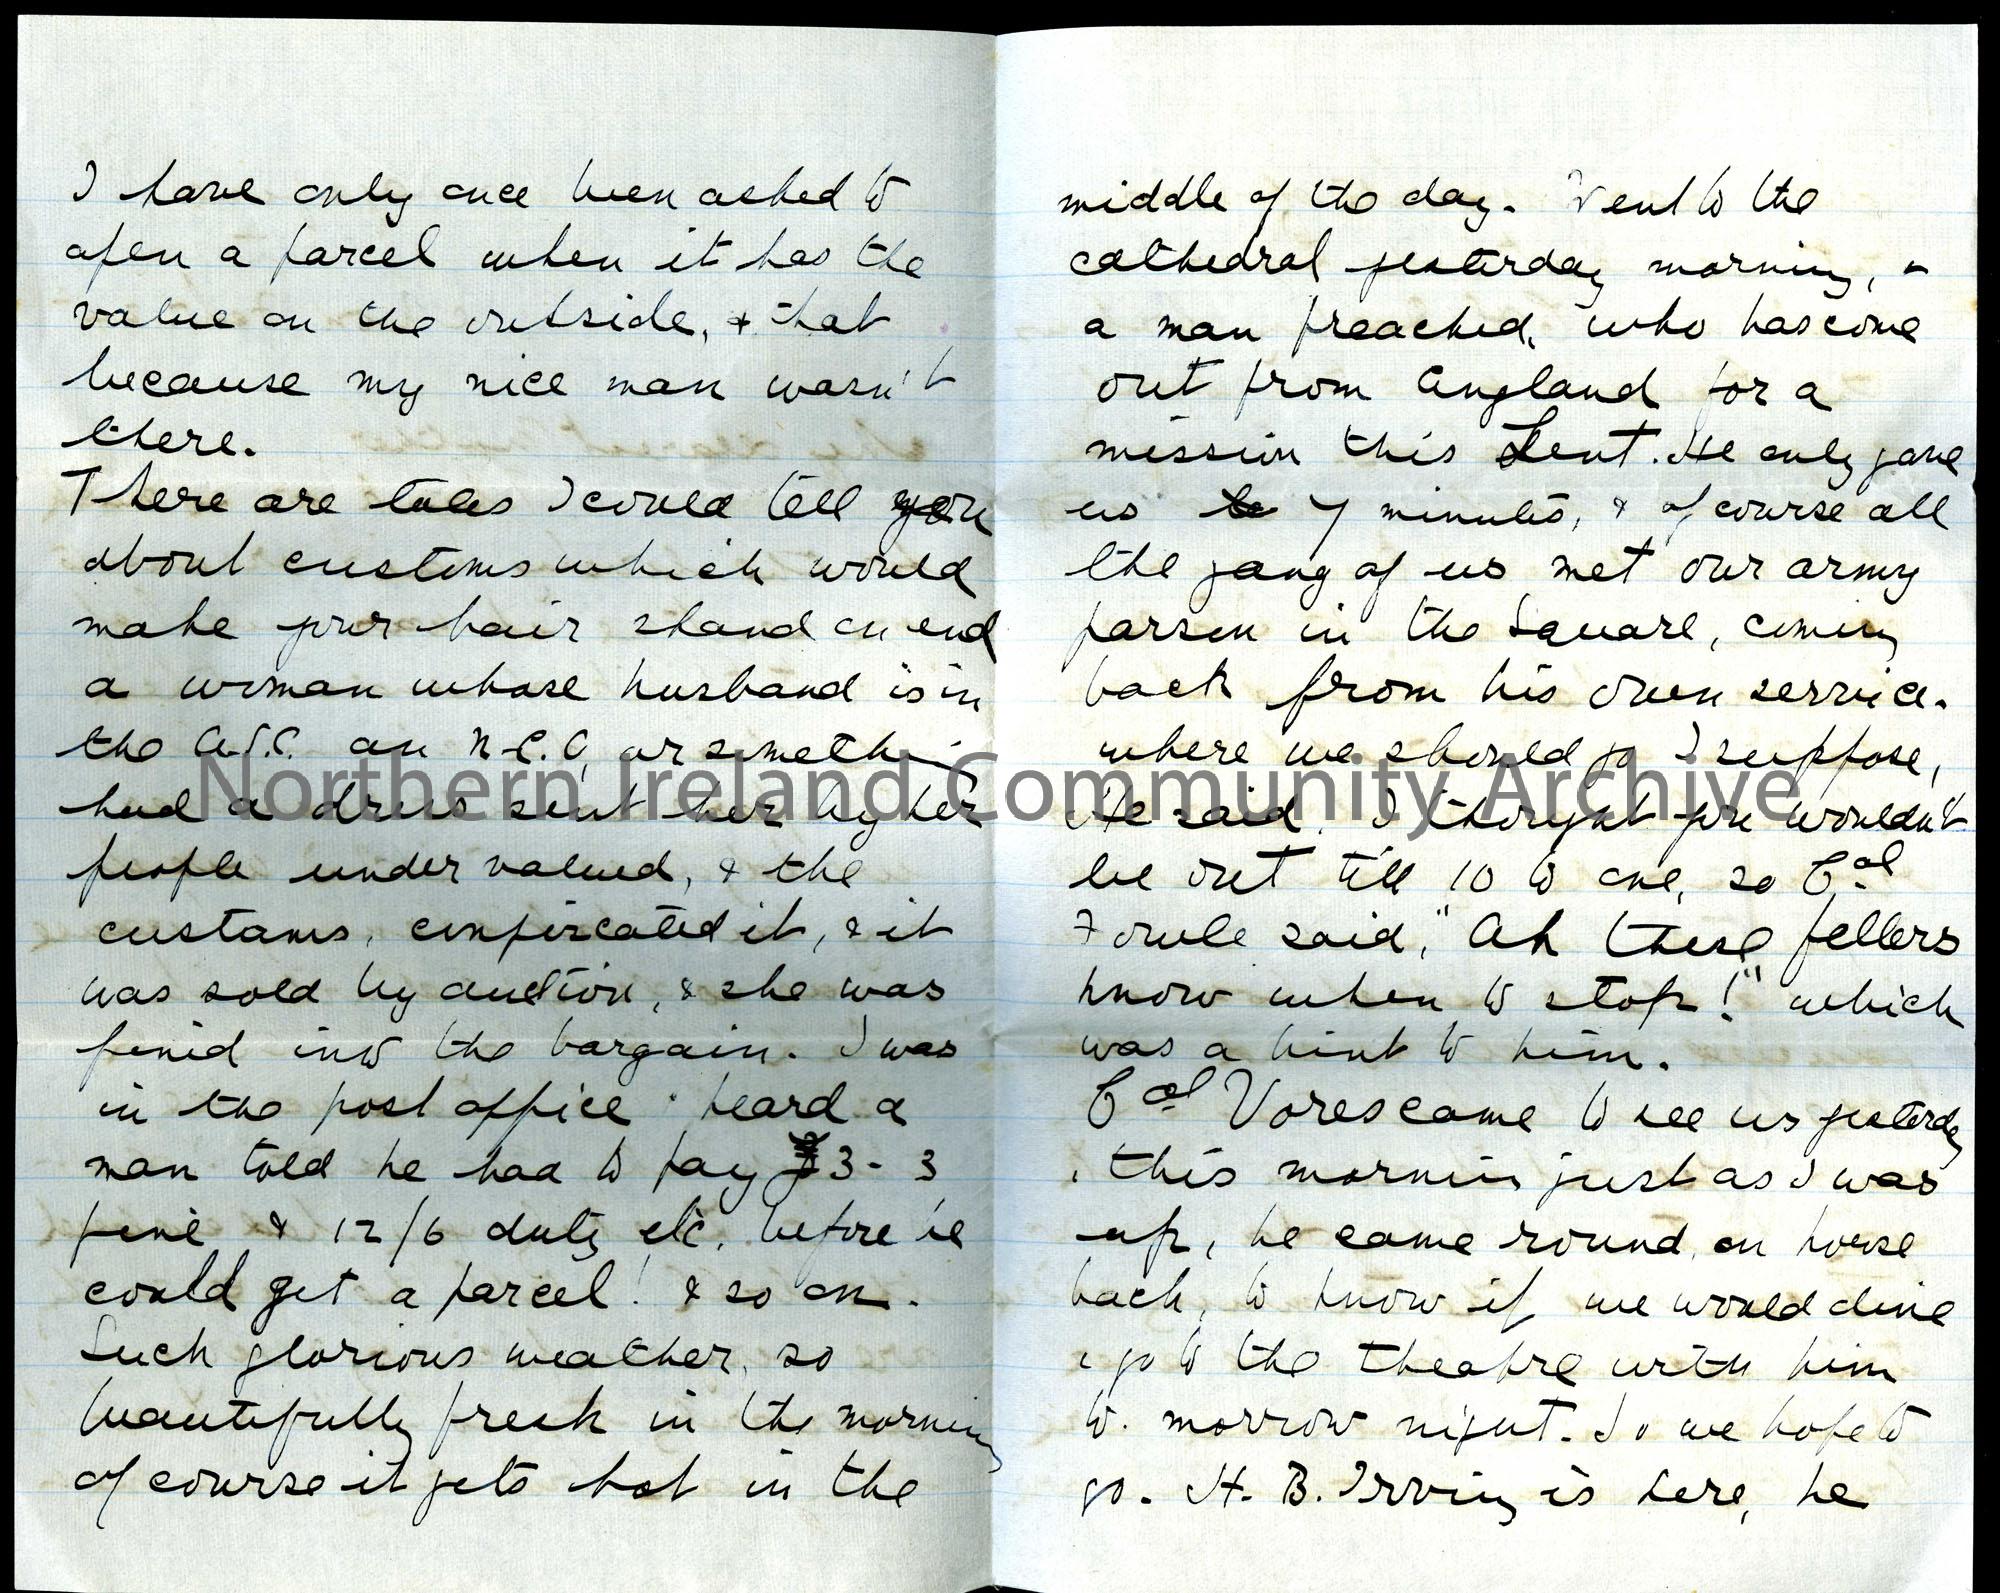 I have only once been asked to
open a parcel when it has the
value on the outside, & that
because my nice man wasn't
there.
There are tales I could tell you
about customs which would
make your hair stand on end
a woman whose husband is in
the A.S.C. an N.C.O, or something
had a dress sent her by her
people under valued, & the
customs, confiscated it, & it
was sold by auction, & she was
fined into the bargain. I was
in the post office & heard a
man told he had to pay £3-3
fine & 12/6 duty etc. before he
could get a parcel! & so on.
Such glorious weather, so
beautifully fresh in the morning
of course it gets hot in the
middle of the day. Went to the
cathedral yesterday morning, &
a man preached, who has come
out from England for a
mission this Lent. He only gave
us 7 minutes, & of course all
the gang of us met our army
parson in the Square, coming
back from his own service.
where we should go I suppose,
He said, I thought you wouldn't
be out till 10 to one, so Col
Fowle said, "Ah these fellers
know when to stop!" which
was a hint to him.
Col Vores came to see us yesterday
& this morning just as I was
up, he came round, on horse
back, to know if we would dine
& go to the theatre with him
to-morrow night. So we hope to
go. H. B. Irving is here, he
Northern Ireland Community Archive